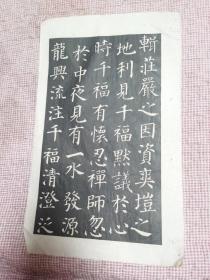 輧莊嚴之因資奕愷之
地利見千福默議於心
時千福有懷忍禪師忽
於中夜見有一水發源
龍興流注千福清澄泛